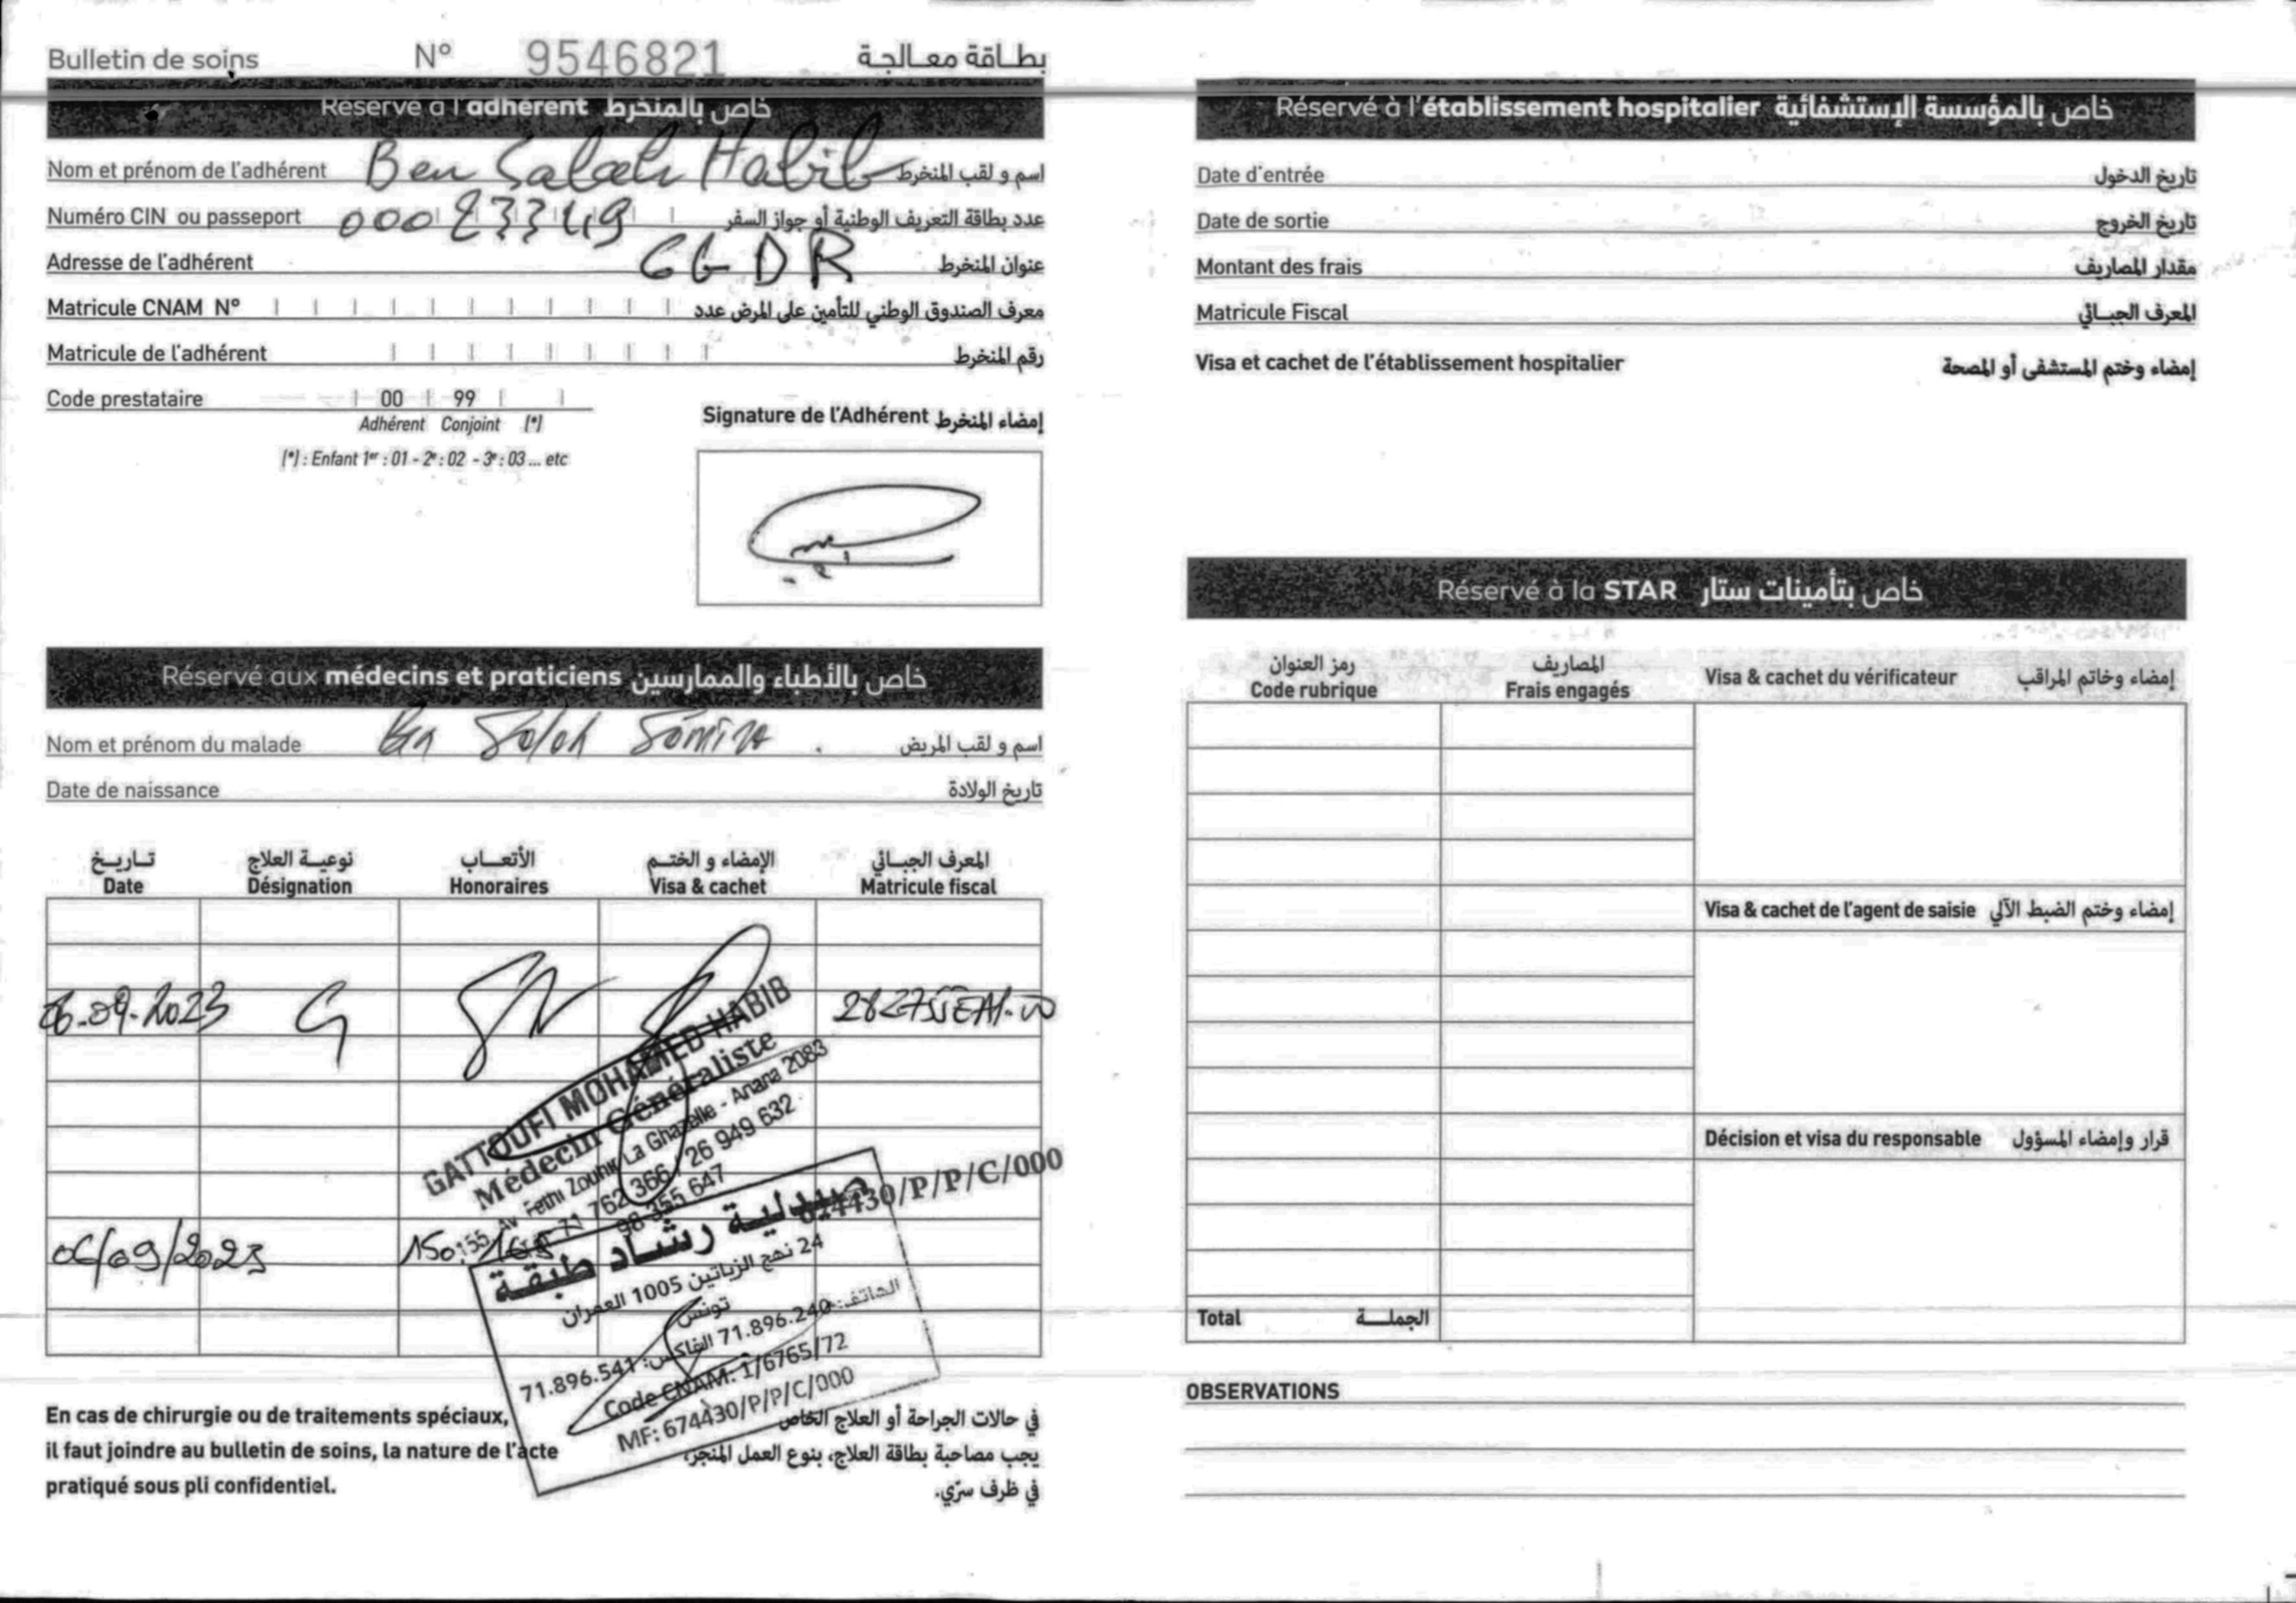 Bulletin de soins N° 9546821 بطاقة معالجة
Réservé à l'adhérent خاص بالمنخرط
Nom et prénom de l'adhérent Ben Salah Habib اسم و لقب المنخرط
Numéro CIN ou passeport عدد بطاقة التعريف الوطنية أو جواز السفر
Adresse de l'adhérent عنوان المنخرط
Matricule CNAM N° معرف الصندوق الوطني للتأمين على المرض عدد
Matricule de l'adhérent رقم المنخرط
Code prestataire 00 99
Adhérent Conjoint (*)
(*) : Enfant 1er : 01 - 2e : 02 - 3e : 03 ... etc
Signature de l'Adhérent إمضاء المنخرط
Réservé aux médecins et praticiens خاص بالأطباء والممارسين
Nom et prénom du malade Ben Salah Samira اسم و لقب المريض
Date de naissance تاريخ الولادة
تاريخ نوعية العلاج الأتعاب الإمضاء و الختم المعرف الجبائي
Date Désignation Honoraires Visa & cachet Matricule fiscal
06.09.2023
GATTOUFI MOHAMED HABIB
Médecin Généraliste
155, Av Fethi Zouhir La Ghazelle - Ariana 2083
71 762 366 / 26 949 632
98 355 647
674430/P/P/C/000
06/09/2023 150,165
صيدلية رشاد طبقة
24 نهج الزياتين 1005 العمران
تونس
الهاتف: 71.896.240 الفاكس: 71.896.541
Code CNAM: 1/6765/72
MF: 674430/P/P/C/000
En cas de chirurgie ou de traitements spéciaux, في حالات الجراحة أو العلاج الخاص
il faut joindre au bulletin de soins, la nature de l'acte يجب مصاحبة بطاقة العلاج، بنوع العمل المنجز،
pratiqué sous pli confidentiel. في ظرف سرّي.
Réservé à l'établissement hospitalier خاص بالمؤسسة الإستشفائية
Date d'entrée تاريخ الدخول
Date de sortie تاريخ الخروج
Montant des frais مقدار المصاريف
Matricule Fiscal المعرف الجبائي
Visa et cachet de l'établissement hospitalier إمضاء وختم المستشفى أو المصحة
Réservé à la STAR خاص بتأمينات ستار
رمز العنوان المصاريف
Code rubrique Frais engagés Visa & cachet du vérificateur إمضاء وخاتم المراقب
Visa & cachet de l'agent de saisie إمضاء وختم الضبط الآلي
Décision et visa du responsable قرار وإمضاء المسؤول
Total الجملة
OBSERVATIONS